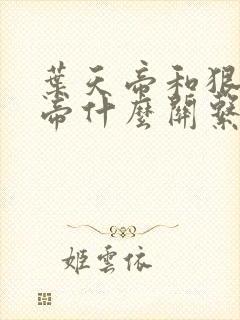 葉天帝和狠
帝什麼關繫
姬雲依